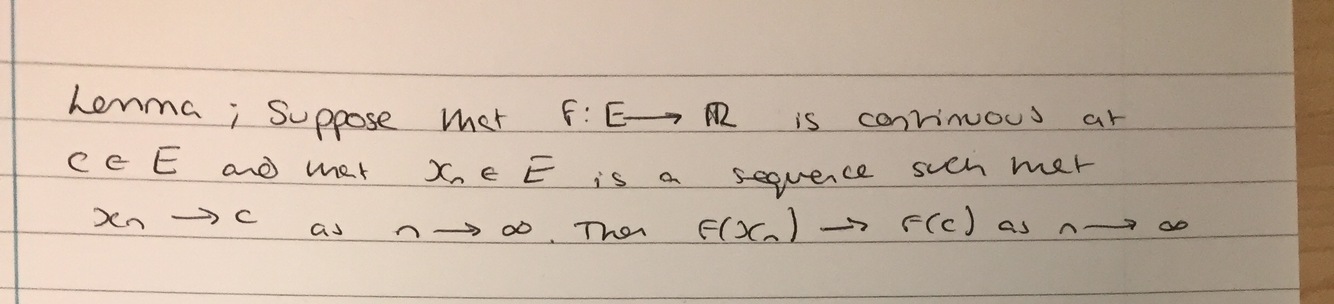 Lemma ; Suppose that f: E → ℝ is continuous at
c ∈ E and that xₙ ∈ E is a sequence such that
xₙ → c as n → ∞. Then f(xₙ) → f(c) as n → ∞